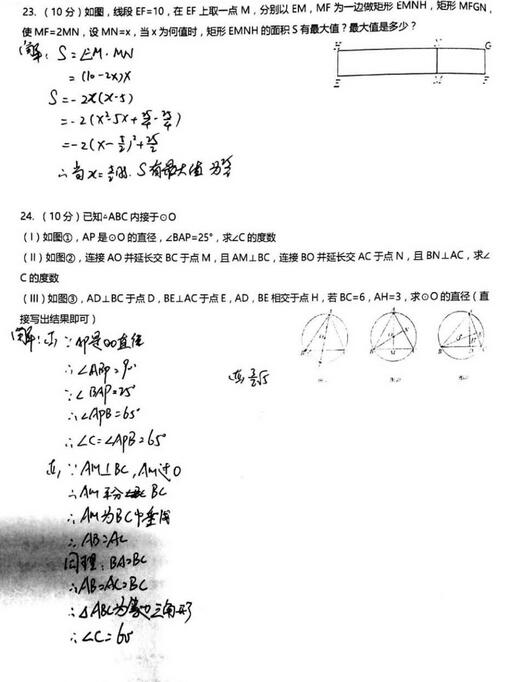 23. （10 分）如图，线段 EF=10，在 EF 上取一点 M，分别以 EM，MF 为一边做矩形 EMNH，矩形 MFGN，
使 MF=2MN，设 MN=x，当 x 为何值时，矩形 EMNH 的面积 S 有最大值？最大值是多少？
解：S=EM·MN
=(10-2x)x
S=-2x(x-5)
=-2(x²-5x+25/4-25/4)
=-2(x-5/2)²+25/2
∴当x=5/2时，S有最大值为
H
N
G
E
M
F
24. （10 分）已知△ABC 内接于⊙O
（I）如图①，AP 是⊙O 的直径，∠BAP=25°，求∠C 的度数
（II）如图②，连接 AO 并延长交 BC 于点 M，且 AM⊥BC，连接 BO 并延长交 AC 于点 N，且 BN⊥AC，求∠
C 的度数
（III）如图③，AD⊥BC 于点 D，BE⊥AC 于点 E，AD，BE 相交于点 H，若 BC=6，AH=3，求⊙O 的直径（直
接写出结果即可）
解：∵AP是⊙O直径
∴∠ABP=90°
∵∠BAP=25°
∴∠APB=65°
∴∠C=∠APB=65°
∵AM⊥BC，AM过O
∴AM平分BC
∴AM为BC中垂线
∴AB=AC
同理：BA=BC
∴AB=AC=BC
∴△ABC为等边三角形
∴∠C=60°
√5